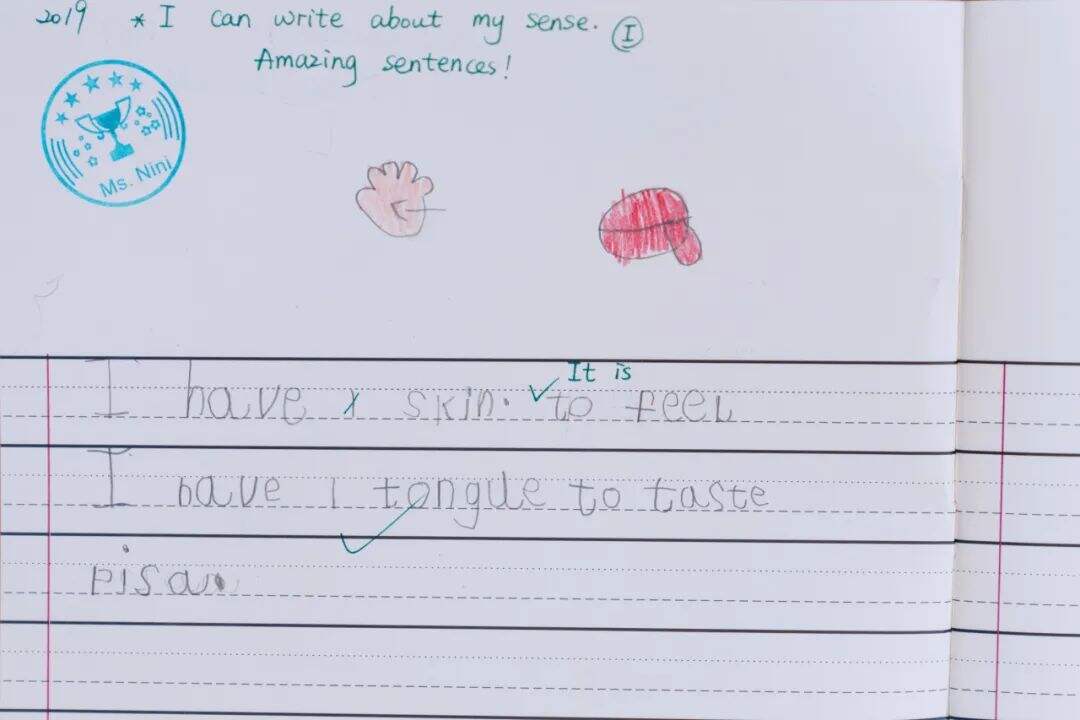 2019 * I can write about my sense. I
Amazing sentences!
Ms. Nini
It is
I have x skin. to feel
I have 1 tongue to taste
pisa.